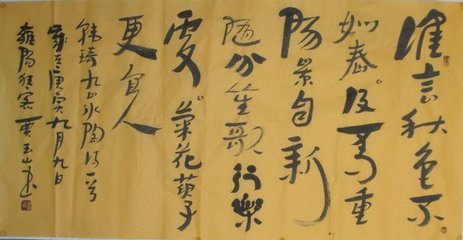 谁言秋色不
如春。及到重
阳景自新
随分笙歌行乐
处。菊花萸子
更宜人
韩琦九日水阁诗一首
岁在庚寅九月九日
雍阳 玉山书